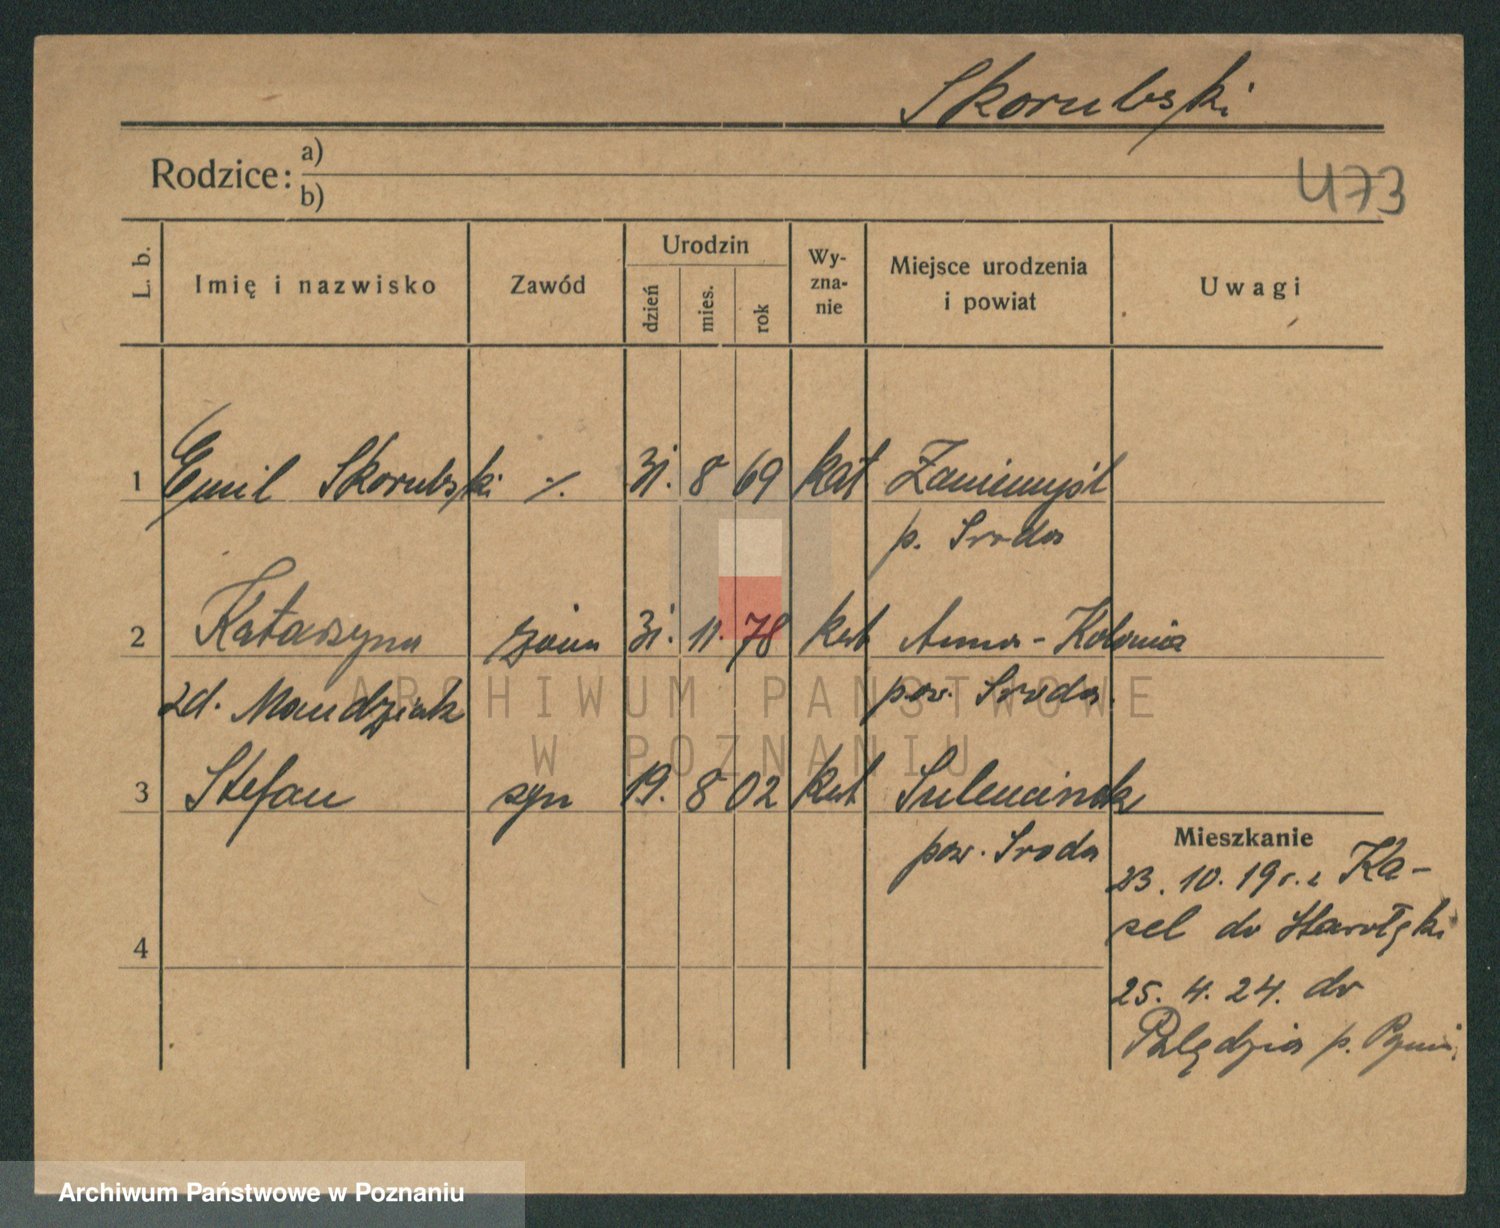 Skorubski
Rodzice:
a)
b)
473
L. b.
Imię i nazwisko
Zawód
Urodzin
dzień
mies.
rok
Wy-
zna-
nie
Miejsce urodzenia
i powiat
Uwagi
1 Emil Skorubski ./. 31. 8 69 kat Zaniemyśl
p. Sroda
2 Katarzyna żona 31. 11. 78 kat Anna-Kolonia
zd. Mandziak pow. Sroda.
3 Stefan syn 19. 8 02 kat Sulencinek
pow. Sroda
Mieszkanie
23. 10. 19 r. z Ka-
sel do Starołęki
4
25. 4. 24. do
Palędzia p.
ARCHIWUM PAŃSTWOWE
W POZNANIU
Archiwum Państwowe w Poznaniu